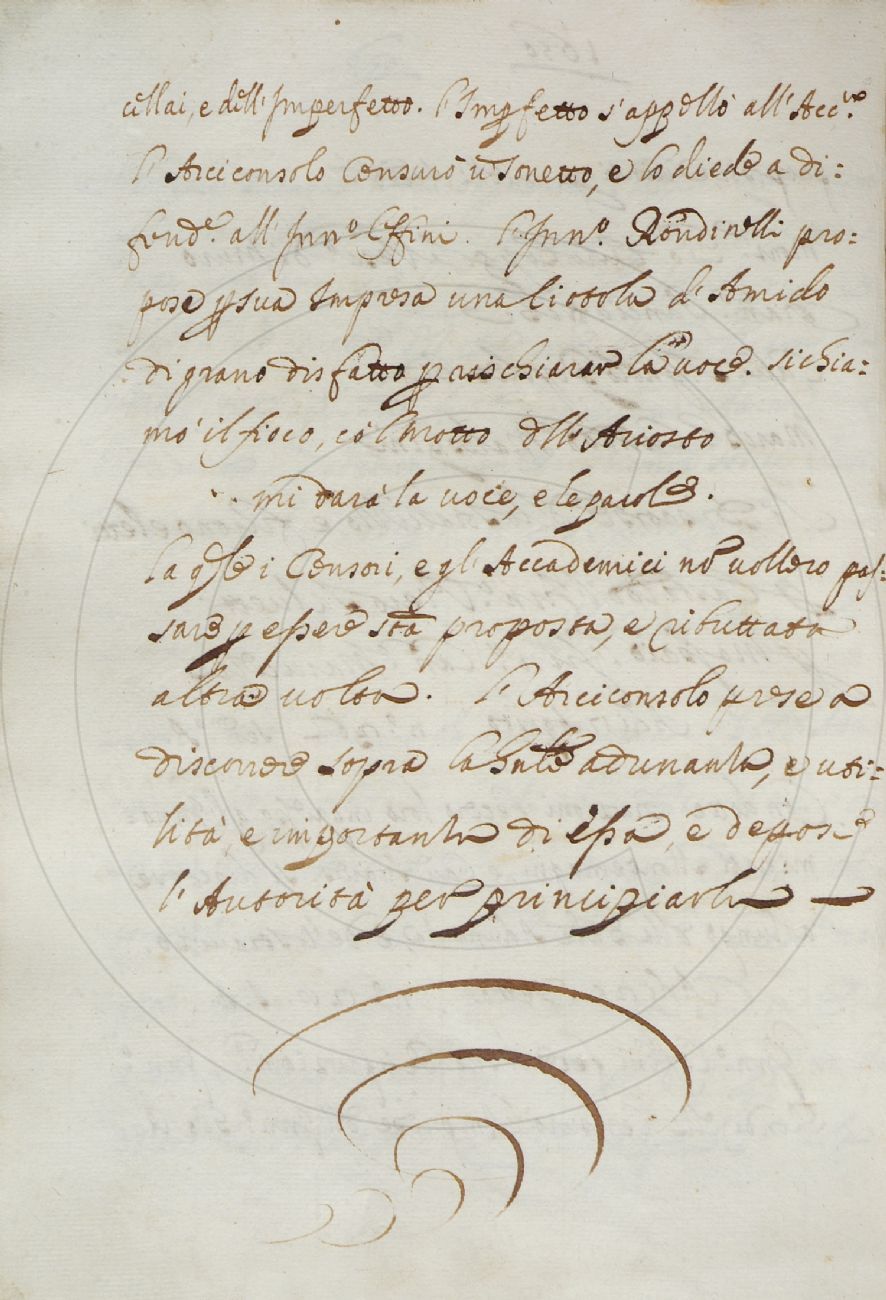 cellai, e dell'Imperfetto. l'Imꝑfetto s'appellò all'Acc.
l'Arciconsolo Censurò ũ Sonetto, e lo diede a di=
fend.e all'Inn.o l'Inn.o Rondinelli pro=
pose ꝑ sua Impresa una Ciotola d'Amido
di grano disfatto ꝑ rischiarar la voce. si chia=
mò il fioco, cõ l Motto dell'Ariosto
mi darà la voce, e le parole.
la qle i Censori, e gl'Accademici nõ vollero pas=
sare ꝑ essere stã proposta, e ributtata
altra volta. l'Arciconsolo prese a
discorrere sopra la adunanza, e uti=
lità, e importanza di essa, e depose
l'Autorità per principiarla —